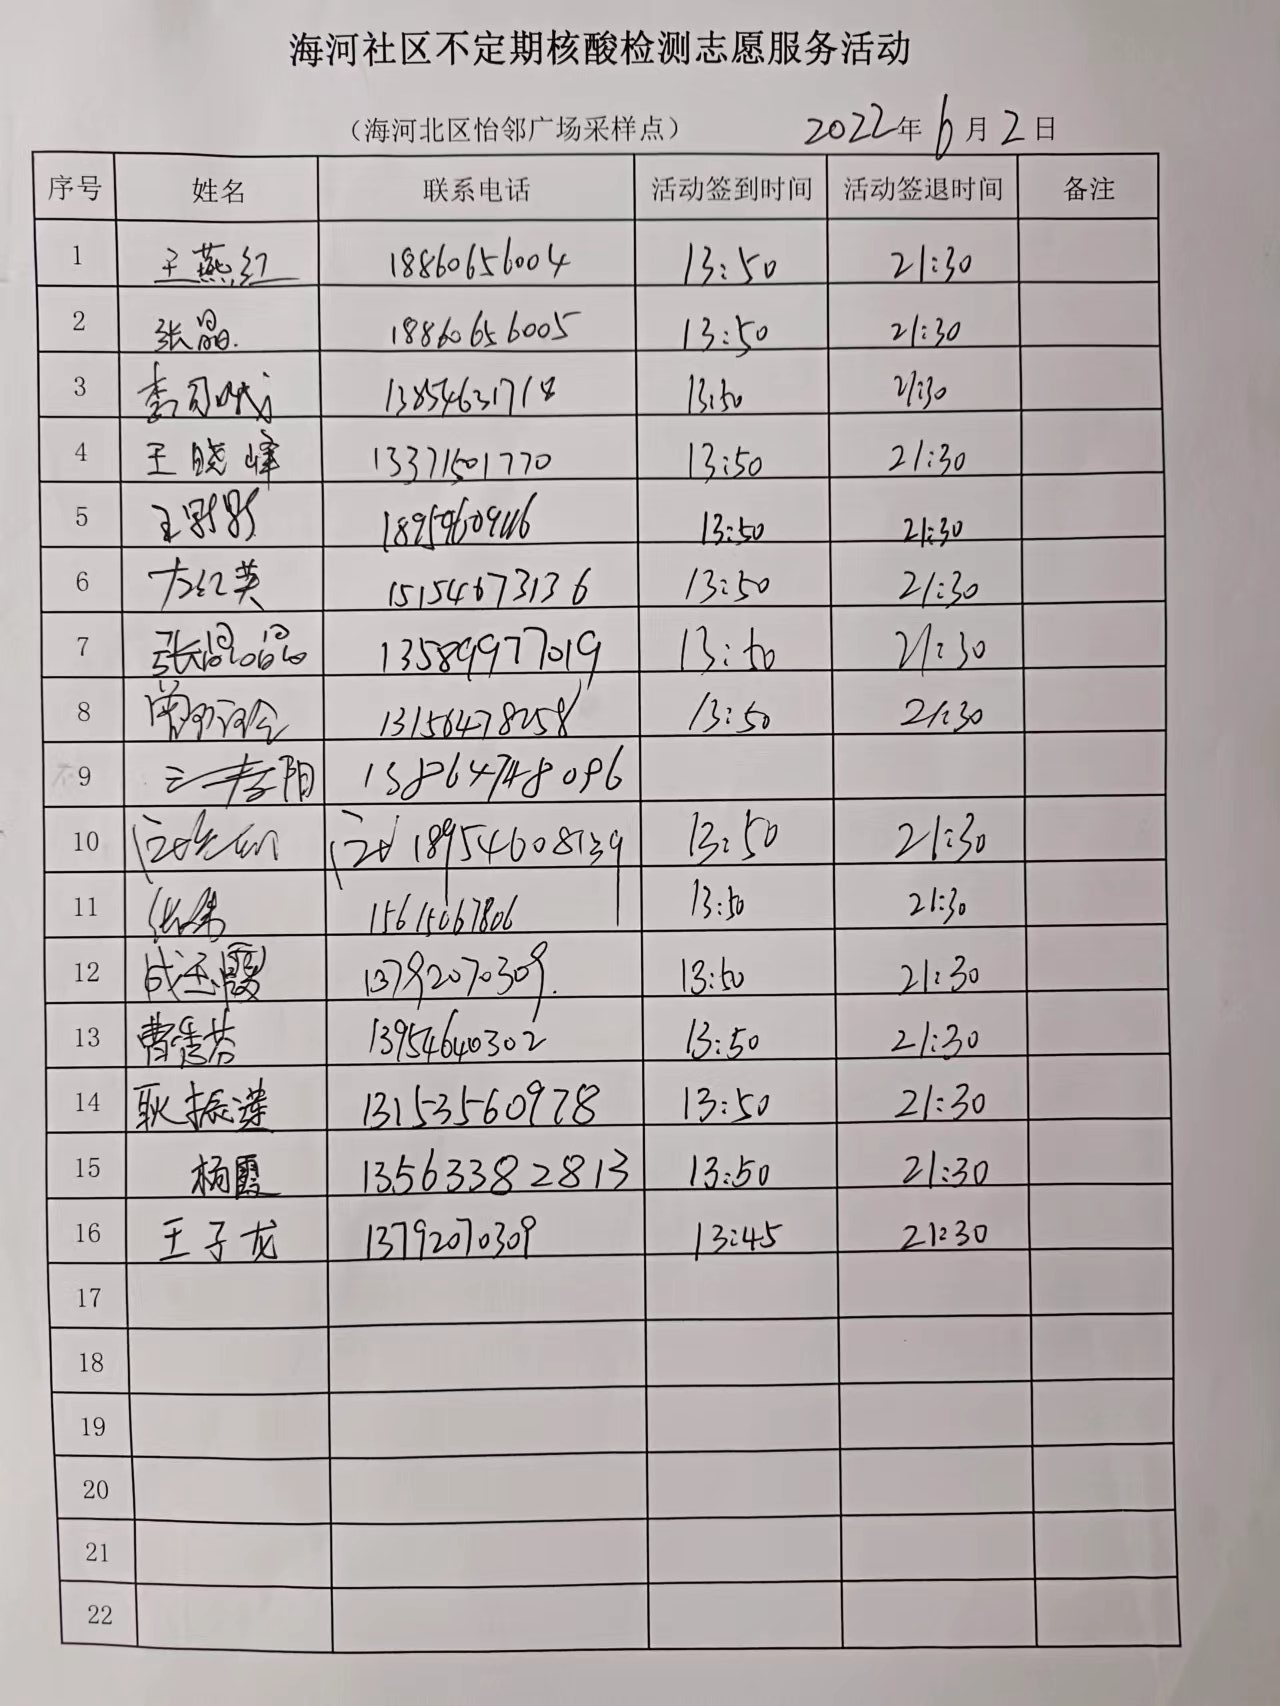 海河社区不定期核酸检测志愿服务活动
（海河北区怡邻广场采样点） 2022年6月2日
序号 姓名 联系电话 活动签到时间 活动签退时间 备注
1 王燕红 18860656004 13:50 21:30
2 张晶. 18860656005 13:50 21:30
3 13854631718 13:50 21:30
4 王晓峰 13371501770 13:50 21:30
5 王影影 13:50 21:30
6 红英 15154673136 13:50 21:30
7 张晶晶 13589977019 13:50 21:30
8 13156478258 13:50 21:30
9 13:50 21:30
10 18954608139 13:50 21:30
11 15615067806 13:50 21:30
12 成玉霞 13792070309. 13:50 21:30
13 曹秀芳 13954640302 13:50 21:30
14 耿振莲 13153560978 13:50 21:30
15 杨霞 13563382813 13:50 21:30
16 王子龙 13792070309 13:45 21:30
17
18
19
20
21
22